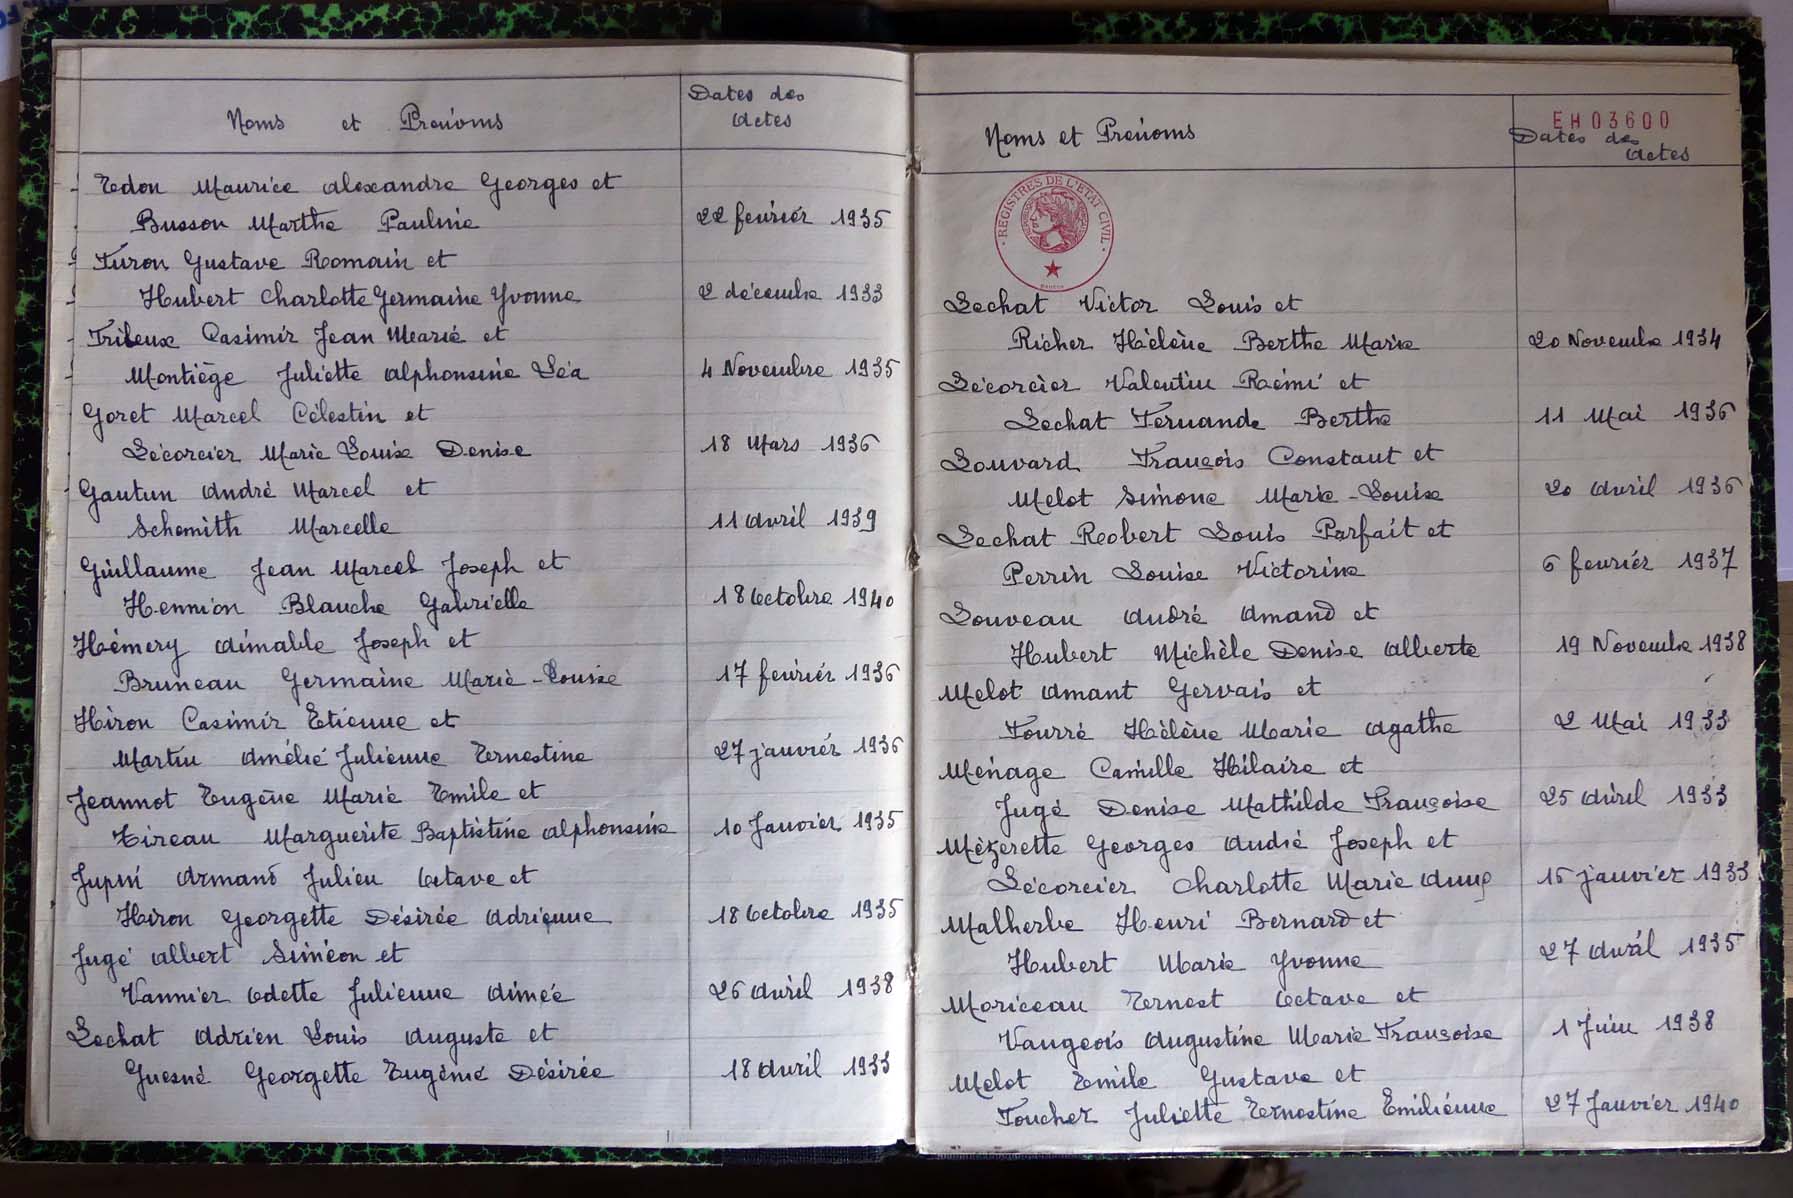 Noms et Prénoms
Dates des
Actes
Edon Maurice Alexandre Georges et
Busson Marthe Pauline
22 février 1935
Furon Gustave Romain et
Hubert Charlotte Germaine Yvonne
2 décembre 1933
Casimir Jean Marie et
Montiège Juliette Alphonsine Léa
4 Novembre 1935
Goret Marcel Célestin et
Lécorcier Marie Louise Denise
18 Mars 1936
Gautun André Marcel et
Schemith Marcelle
11 Avril 1939
Guillaume Jean Marcel Joseph et
Hennion Blanche Gabrielle
18 Octobre 1940
Hémery Aimable Joseph et
Bruneau Germaine Marie-Louise
17 février 1936
Hiron Casimir Etienne et
Martin Amélie Julienne Ernestine
27 janvier 1936
Jeannot Eugène Marie Emile et
Marguerite Baptistine Alphonsine
10 Janvier 1935
Jupin Armand Julien Octave et
Hiron Georgette Désirée Adrienne
18 Octobre 1935
Jugé Albert Siméon et
Vannier Odette Julienne Aimée
26 Avril 1938
Lechat Adrien Louis Auguste et
Guesné Georgette Eugénie Désirée
18 Avril 1933
Noms et Prénoms
EH03600
Dates des
Actes
REGISTRES DE L'ETAT CIVIL
Lechat Victor Louis et
Richer Hélène Berthe Marie
20 Novembre 1934
Lécorcier Valentin Rémi et
Lechat Fernande Berthe
11 Mai 1936
Louvard François Constant et
Melot Simone Marie-Louise
20 Avril 1936
Lechat Robert Louis Parfait et
Perrin Louise Victorine
6 février 1937
Louveau André Amand et
Hubert Michèle Denise Alberte
19 Novembre 1938
Melot Amant Gervais et
Fourré Hélène Marie Agathe
2 Mai 1933
Ménage Camille Hilaire et
Jugé Denise Mathilde Françoise
25 Avril 1933
Mézerette Georges André Joseph et
Lécorcier Charlotte Marie Anne
16 janvier 1933
Malherbe Henri Bernard et
Hubert Marie Yvonne
27 Avril 1935
Moriceau Ernest Octave et
Vangeois Augustine Marie Françoise
1 Juin 1938
Melot Emile Gustave et
Foucher Juliette Ernestine Emilienne
27 Janvier 1940